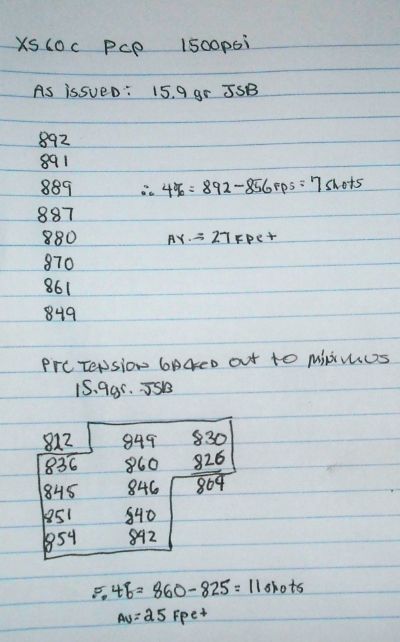 XS60c PCP 1500psi
As issued: 15.9 gr JSB
892
891
889 ∴ 4% = 892-856 fps = 7 shots
887
880 Av. = 27 Fpe+
870
861
849
tension backed out to minimus
15.9gr. JSB
812 849 830
836 860 826
845 846 804
851 840
854 842
∴ 4% = 860-825 = 11 shots
Av = 25 Fpe+